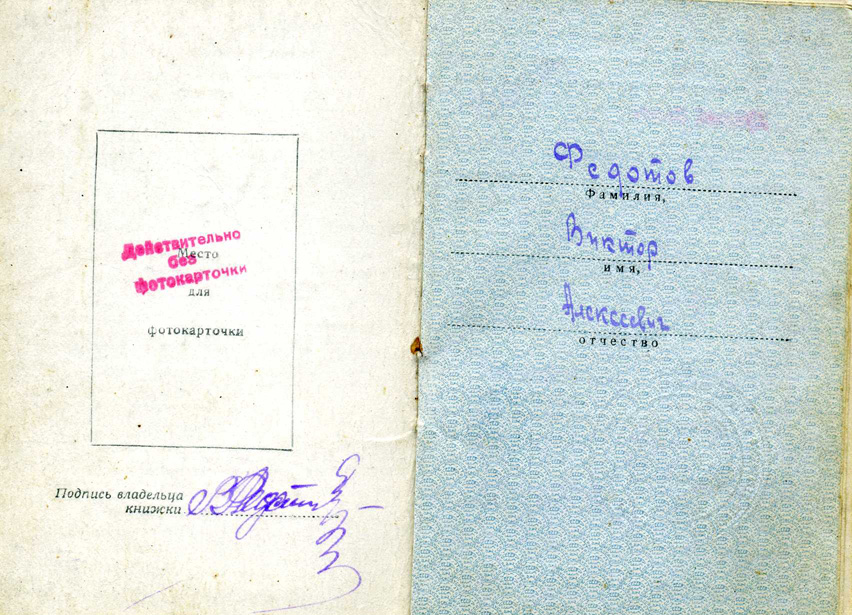 Действительно
без
фотокарточки
Место
для
фотокарточки
Подпись владельца
книжки
Федотов
Фамилия,
Виктор
имя,
Алексеевич
отчество